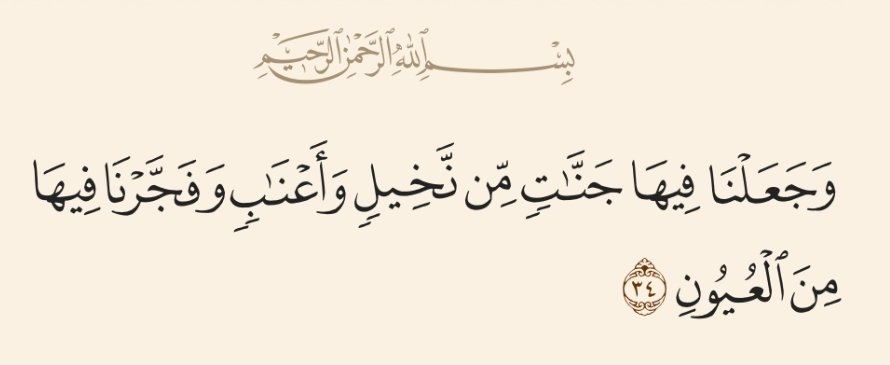 بِسْمِ ٱللَّهِ ٱلرَّحْمَٰنِ ٱلرَّحِيمِ
وَجَعَلْنَا فِيهَا جَنَّٰتٍ مِّن نَّخِيلٍ وَأَعْنَٰبٍ وَفَجَّرْنَا فِيهَا
مِنَ ٱلْعُيُونِ ٣٤